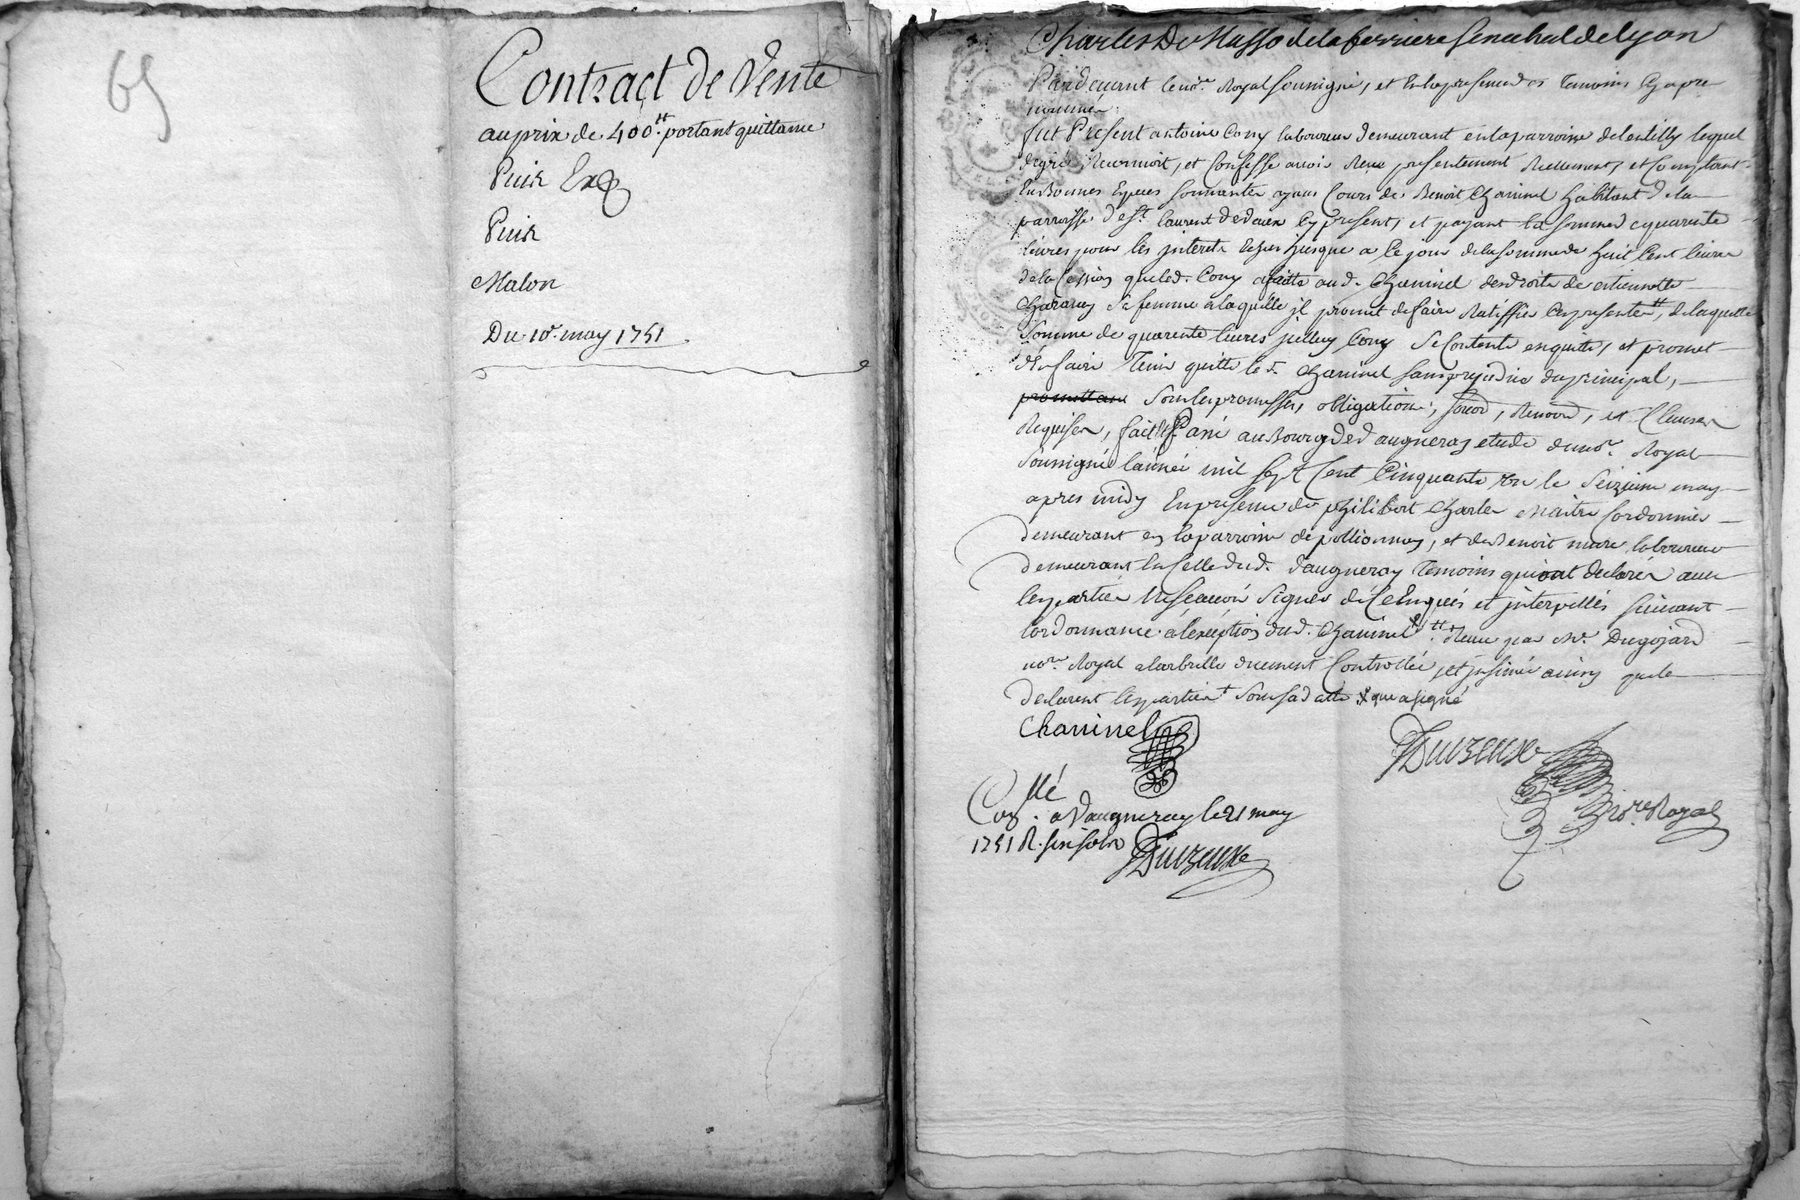 65
Contract de Vente
au prix de 400ᵗᵗ portant quittance
Puis Exp
Puis
Malon
Du 10ᵉ. may 1751
Charles De Masso de la ferriere Senechal de Lyon
Pardevant le noʳᵉ. Royal soussigné, et En la presence des Temoins Cy apres
nommés
fut Present antoine Cony laboureur demeurant en la parroisse de lentilly lequel
de gré Reconnoit, et Confesse avoir Receu presentement Reellement, et Comptant
En Bonnes Especes sonnantes ayant Cours de Benoit Chaninel habitant de la
parroisse de Sᵗ. laurent de Cy present, et payant la somme de quarente
livres pour les jnterets Echus jusque a Ce jour de la somme de huit Cent livres
de la Cession que led. Cony a faitte aud. Chaninel des droits de etiennette
sa femme a laquelle jl promet de faire Ratiffier Ces presentesᵗᵗ, de laquelle
somme de quarente livres jcelluy Cony se Contente en quitte, et promet
de faire Tenir quitte led. Chaninel sans prejudice du principal,
promettant sous les promesses, obligations, et Clauses
Requises, fait et Passé au Bourg de Vaugneray etude du noʳᵉ. Royal
soussigné l'année mil sept Cent Cinquante un le seizieme may
apres midy En presence de philibert Charles Maitre Cordonnier
demeurant en la parroisse de pollionnay, et de Benoit laboureur
demeurant En Celle dud. Vaugneray Temoins qui ont declarés avec
les parties ne scavoir signer de Ce Enquis et jnterpellés suivant
l'ordonnance a l'exception dud. Chaninel ᵗᵗ Receue par Mᵉ. Dugojard
noʳᵉ Royal a larbrelle duement Controllée, et jnsinué ainsy que le
declarent les parties sous sa datte qui a signé
Chaninel
Duizeux
noʳᵉ Royal
Conᵗˡˡé a Vaugneray le 21 may
1751 R. six sols
Duizeux